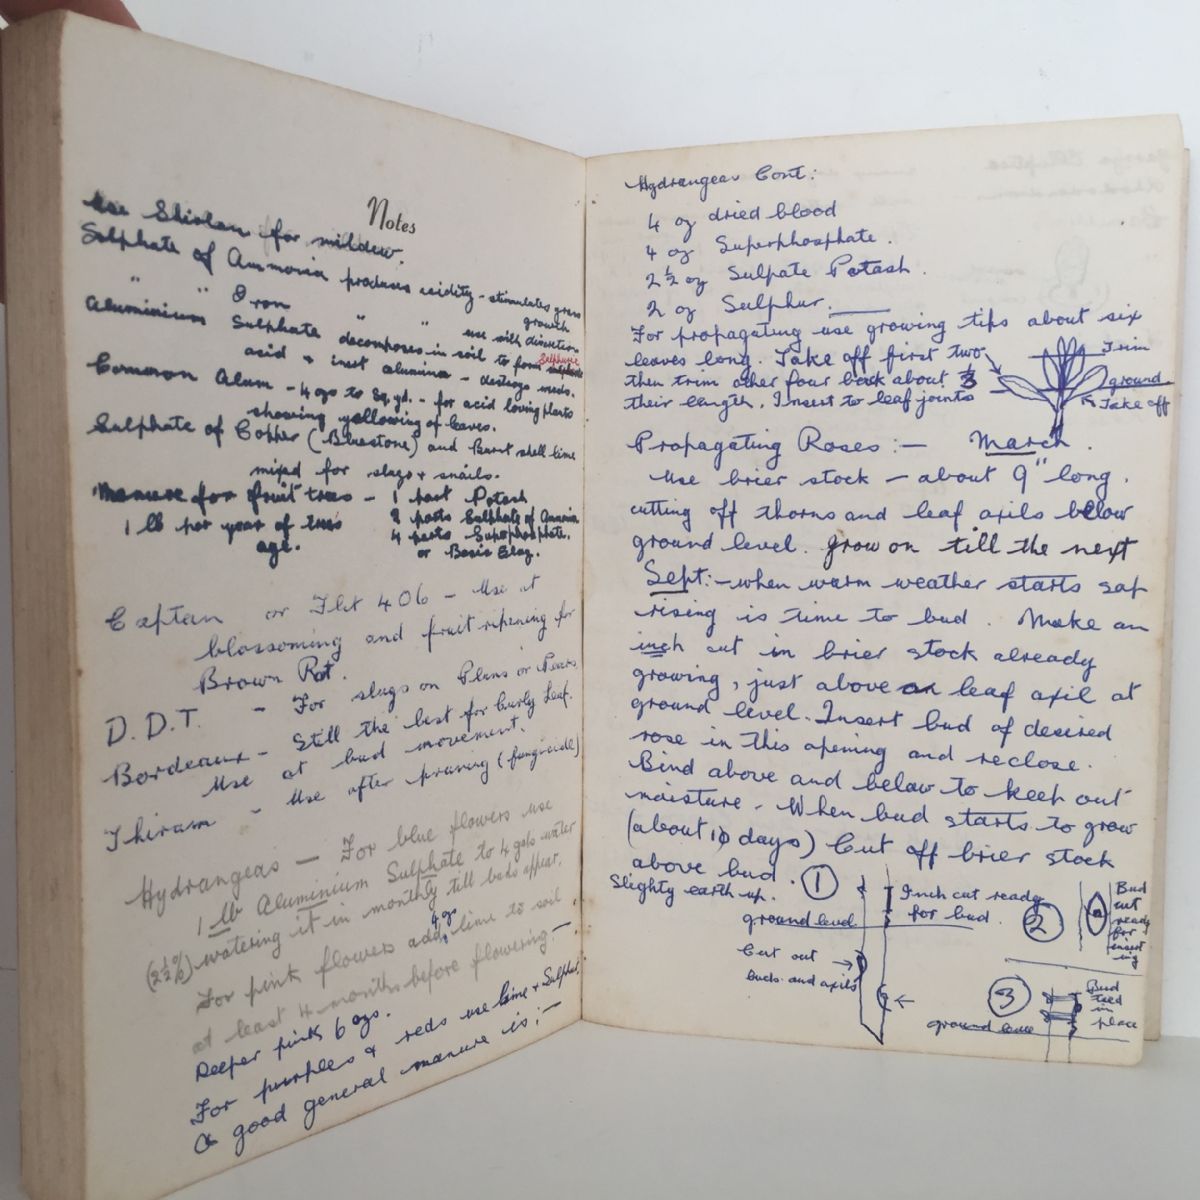 Notes
Use Shirlan for mildew.
Sulphate of Ammonia produces acidity - stimulates grass growth
" " Iron " " use with discretion
Aluminium Sulphate decomposes in soil to form Sulphuric
acid & inert alumina - destroys weeds.
Common Alum - 4 ozs to sq. yd. - for acid loving plants
showing yellowing of leaves.
Sulphate of Copper (Bluestone) and Burnt shell lime
mixed for slugs & snails.
Manure for fruit trees - 1 part Potash
1 lb per year of trees 8 parts Sulphate of Ammonia
age. 4 parts Superphosphate.
or Basic Slag.
Captan or Flit 406 - Use at
blossoming and fruit ripening for
Brown Rot.
D.D.T. - For slugs on Plums or Pears
Bordeaux - Still the best for Curly Leaf.
Use at bud movement.
Thiram - Use after pruning (fungicide)
Hydrangeas - For blue flowers use
1 lb Aluminium Sulphate to 4 gals water
(2½%) watering it in monthly till buds appear.
For pink flowers add 4 ozs lime to soil
at least 4 months before flowering -
Deeper pink 6 ozs.
For purples & reds use lime & Sulphur
A good general manure is :-
Hydrangeas Cont:
4 oz dried blood
4 oz Superphosphate.
2½ oz Sulpate Potash.
2 oz Sulphur.
For propagating use growing tips about six
leaves long. Take off first two
then trim other four back about ⅓
their length. Insert to leaf joints
Trim
ground
Take off
Propagating Roses :- March
Use brier stock - about 9" long.
cutting off thorns and leaf axils below
ground level. grow on till the next
Sept: - when warm weather starts sap
rising is time to bud. Make an
inch cut in brier stock already
growing, just above a leaf axil at
ground level. Insert bud of desired
rose in this opening and reclose.
Bind above and below to keep out
moisture - When bud starts to grow
(about 10 days) Cut off brier stock
above bud.
Slighty earth up.
1
Inch cut ready
for bud.
ground level
Cut out
buds and axils
2
Bud
cut
ready
for
insert
ing
3
Bud
tied
in
place
ground level